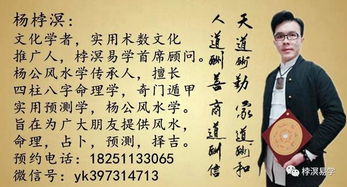 杨桲溟：
文化学者，实用术数文化
推广人，桲溟易学首席顾问。
杨公风水学传承人，擅长
四柱八字命理学，奇门遁甲
实用预测学，杨公风水学。
旨在为广大朋友提供风水，
命理，占卜，预测，择吉。
预约电话：18251133065
微信号：yk397314713
天道酬勤 家道酬和
人道酬善 商道酬信
桲溟易学